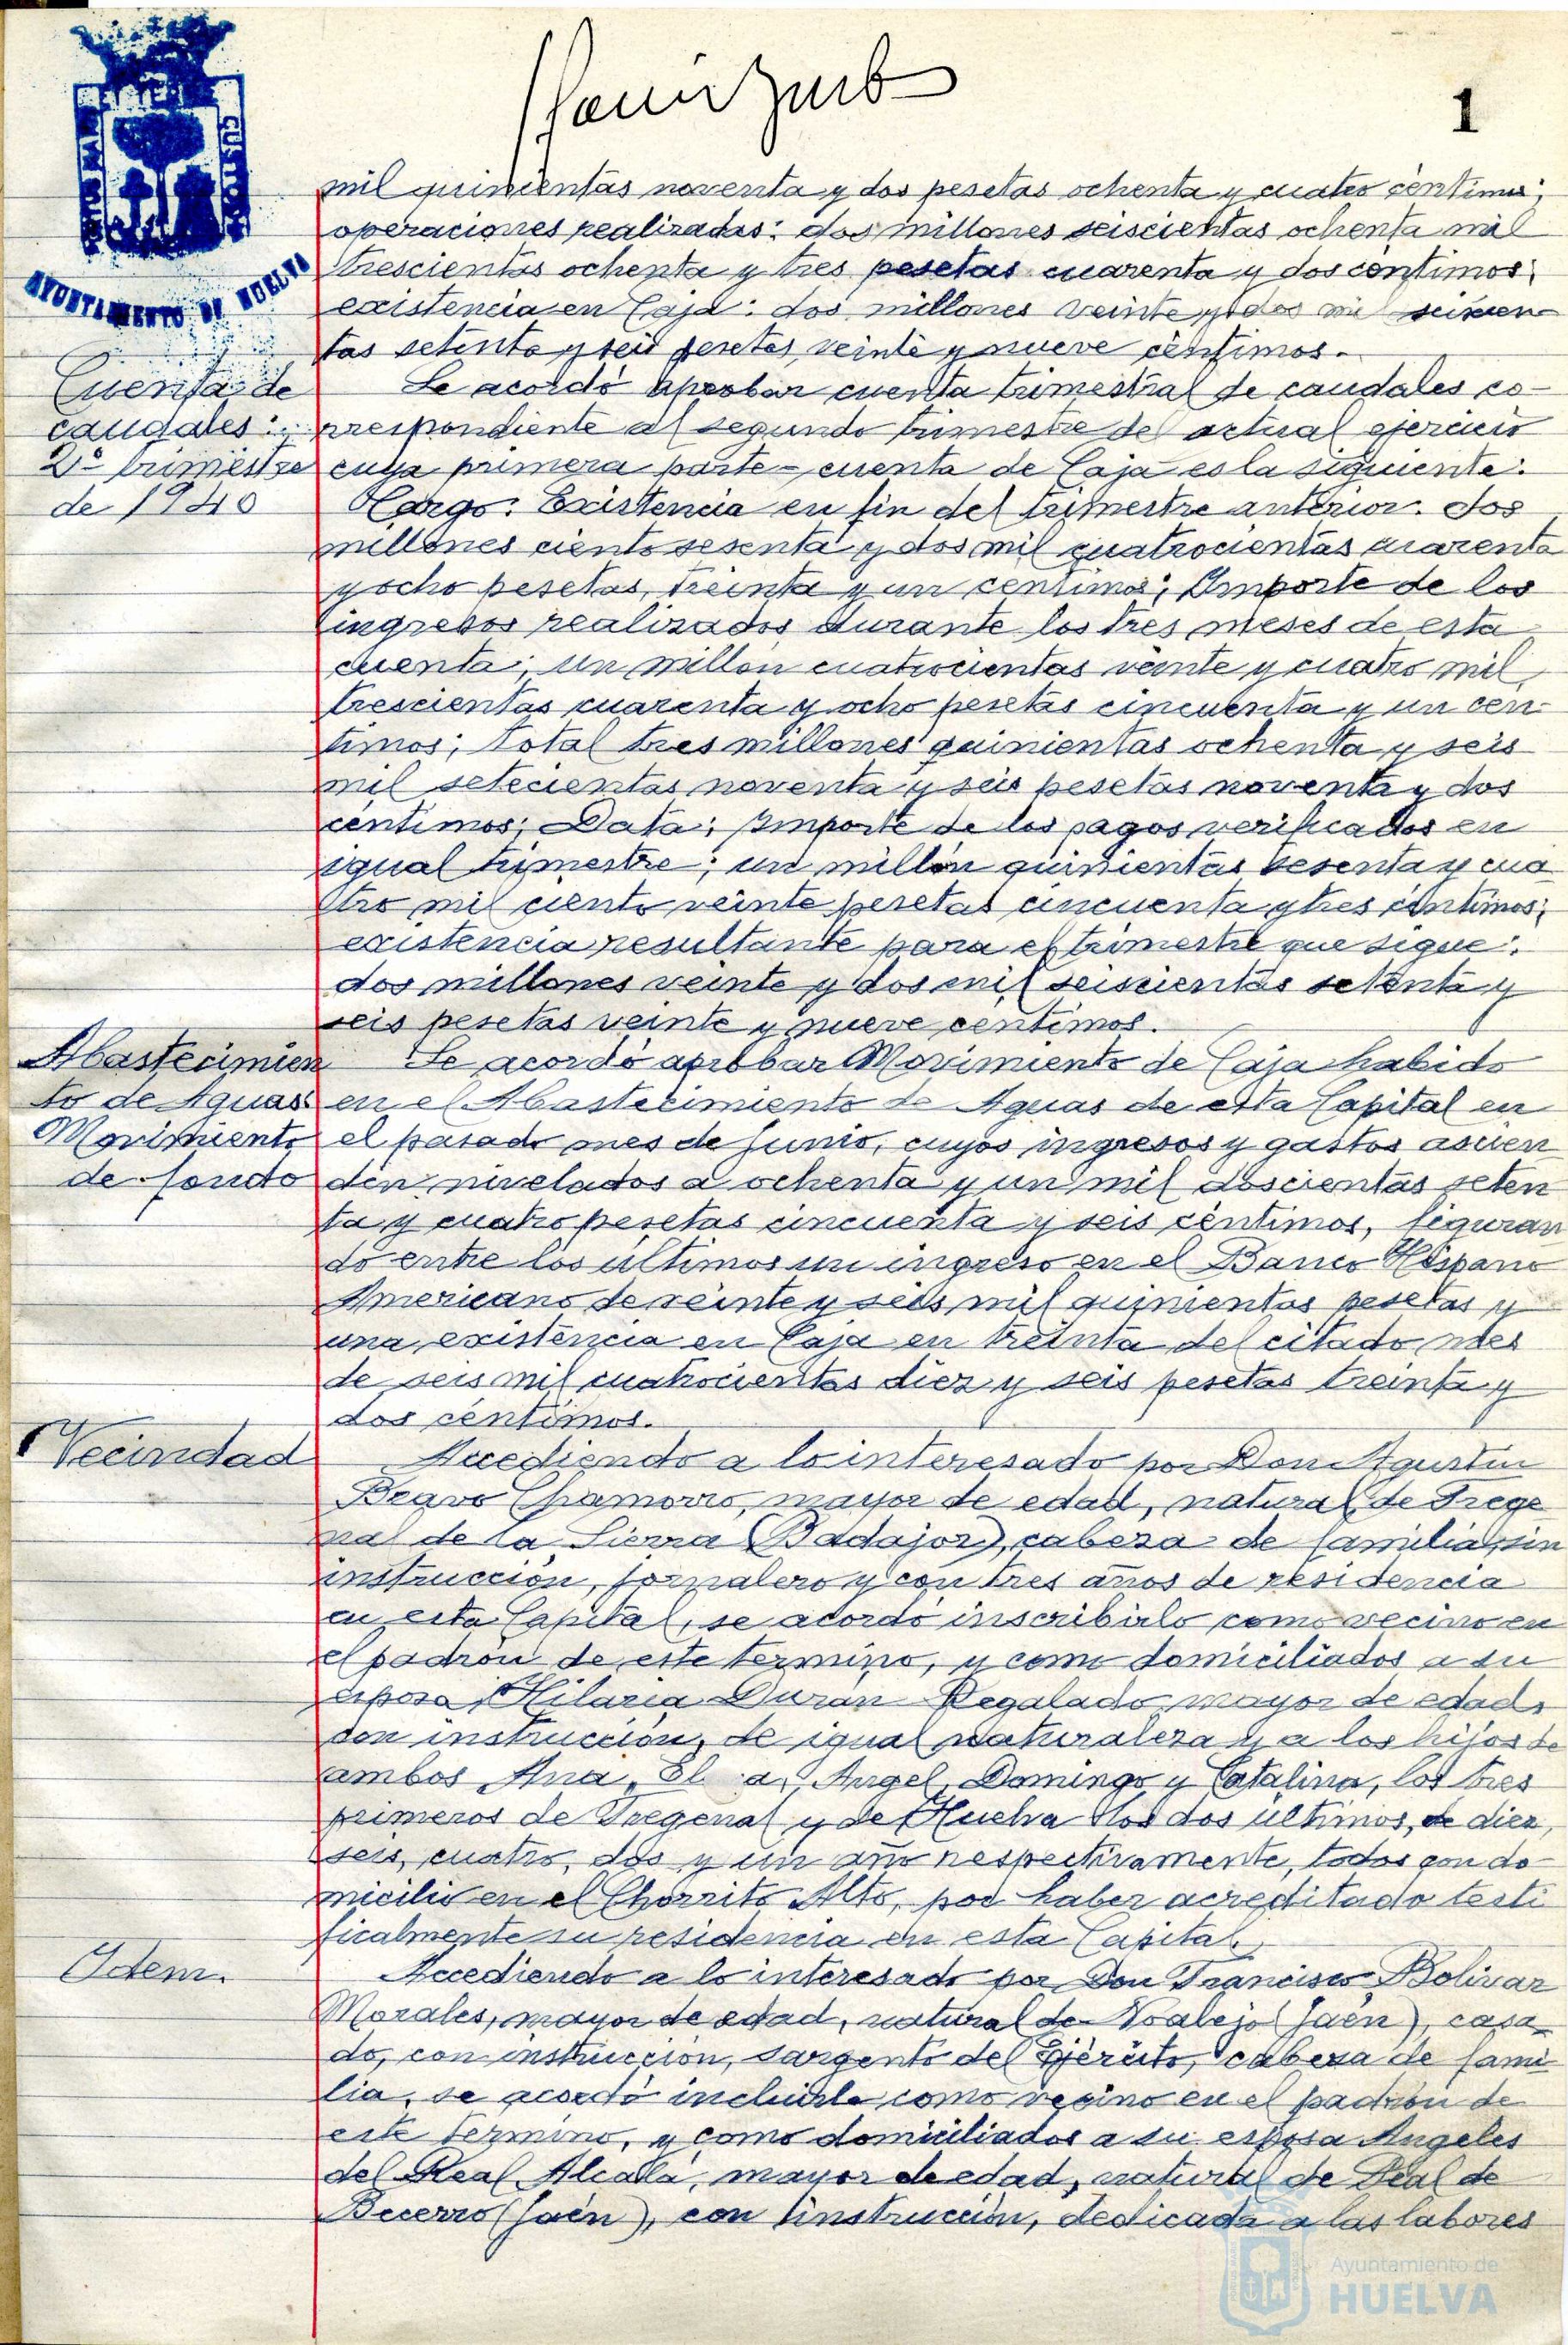 1
AYUNTAMIENTO DE HUELVA
mil quinientas noventa y dos pesetas ochenta y cuatro céntimos;
operaciones realizadas: dos millones seiscientas ochenta mil
trescientas ochenta y tres pesetas cuarenta y dos centimos;
existencia en Caja: dos millones veinte y dos mil seiscien-
tas setenta y seis pesetas, veinte y nueve céntimos.
Cuenta de
caudales:
2º trimestre
de 1940
Se acordó aprobar cuenta trimestral de caudales co-
rrespondiente al segundo trimestre del actual ejercicio
cuya primera parte - cuenta de Caja es la siguiente:
Cargo: Existencia en fin del trimestre anterior: dos
millones ciento sesenta y dos mil cuatrocientas cuarenta
y ocho pesetas, treinta y un centimos; Importe de los
ingresos realizados durante los tres meses de esta
cuenta; un millón cuatrocientas veinte y cuatro mil
trescientas cuarenta y ocho pesetas cincuenta y un cen-
timos; total tres millones quinientas ochenta y seis
mil setecientas noventa y seis pesetas noventa y dos
céntimos; Data; Importe de los pagos verificados en
igual trimestre; un millón quinientas sesenta y cua
tro mil ciento veinte pesetas cincuenta y tres céntimos;
existencia resultante para el trimestre que sigue:
dos millones veinte y dos mil seiscientas setenta y
seis pesetas veinte y nueve centimos.
Abastecimien
to de Aguas
Movimiento
de fondo
Se acordó aprobar Movimiento de Caja habido
en el Abastecimiento de Aguas de esta Capital en
el pasado mes de Junio, cuyos ingresos y gastos ascien
den nivelados a ochenta y un mil doscientas seten
ta y cuatro pesetas cincuenta y seis céntimos, figuran
do entre los últimos un ingreso en el Banco Hispano
Americano de veinte y seis mil quinientas pesetas y
una existencia en Caja en treinta del citado mes
de seis mil cuatrocientas diez y seis pesetas treinta y
dos céntimos.
Vecindad
Accediendo a lo interesado por Don Agustín
Bravo Chamorro, mayor de edad, natural de Frege
nal de la Sierra (Badajoz), cabeza de familia, sin
instrucción, jornalero y con tres años de residencia
en esta Capital, se acordó inscribirlo como vecino en
el padrón de este termino, y como domiciliados a su
esposa, Hilaria Durán Regalado, mayor de edad,
con instrucción, de igual naturaleza y a los hijos de
ambos Ana, El a, Angel, Domingo y Catalina, los tres
primeros de Fregenal y de Huelva los dos últimos, de diez,
seis, cuatro, dos y un año respectivamente, todos con do
micilio en el Chorrito Alto, por haber acreditado testi
ficalmente su residencia en esta Capital.
Idem.
Accediendo a lo interesado por Don Francisco Bolivar
Morales, mayor de edad, natural de Noalejo (Jaén), casa
do, con instrucción, sargento del Ejército, cabeza de fami
lia, se acordó incluirle como vecino en el padrón de
este termino, y como domiciliados a su esposa Angeles
del Real Alcalá, mayor de edad, natural de Real de
Becerro (Jaén), con instrucción, dedicada a las labores
Ayuntamiento de
HUELVA